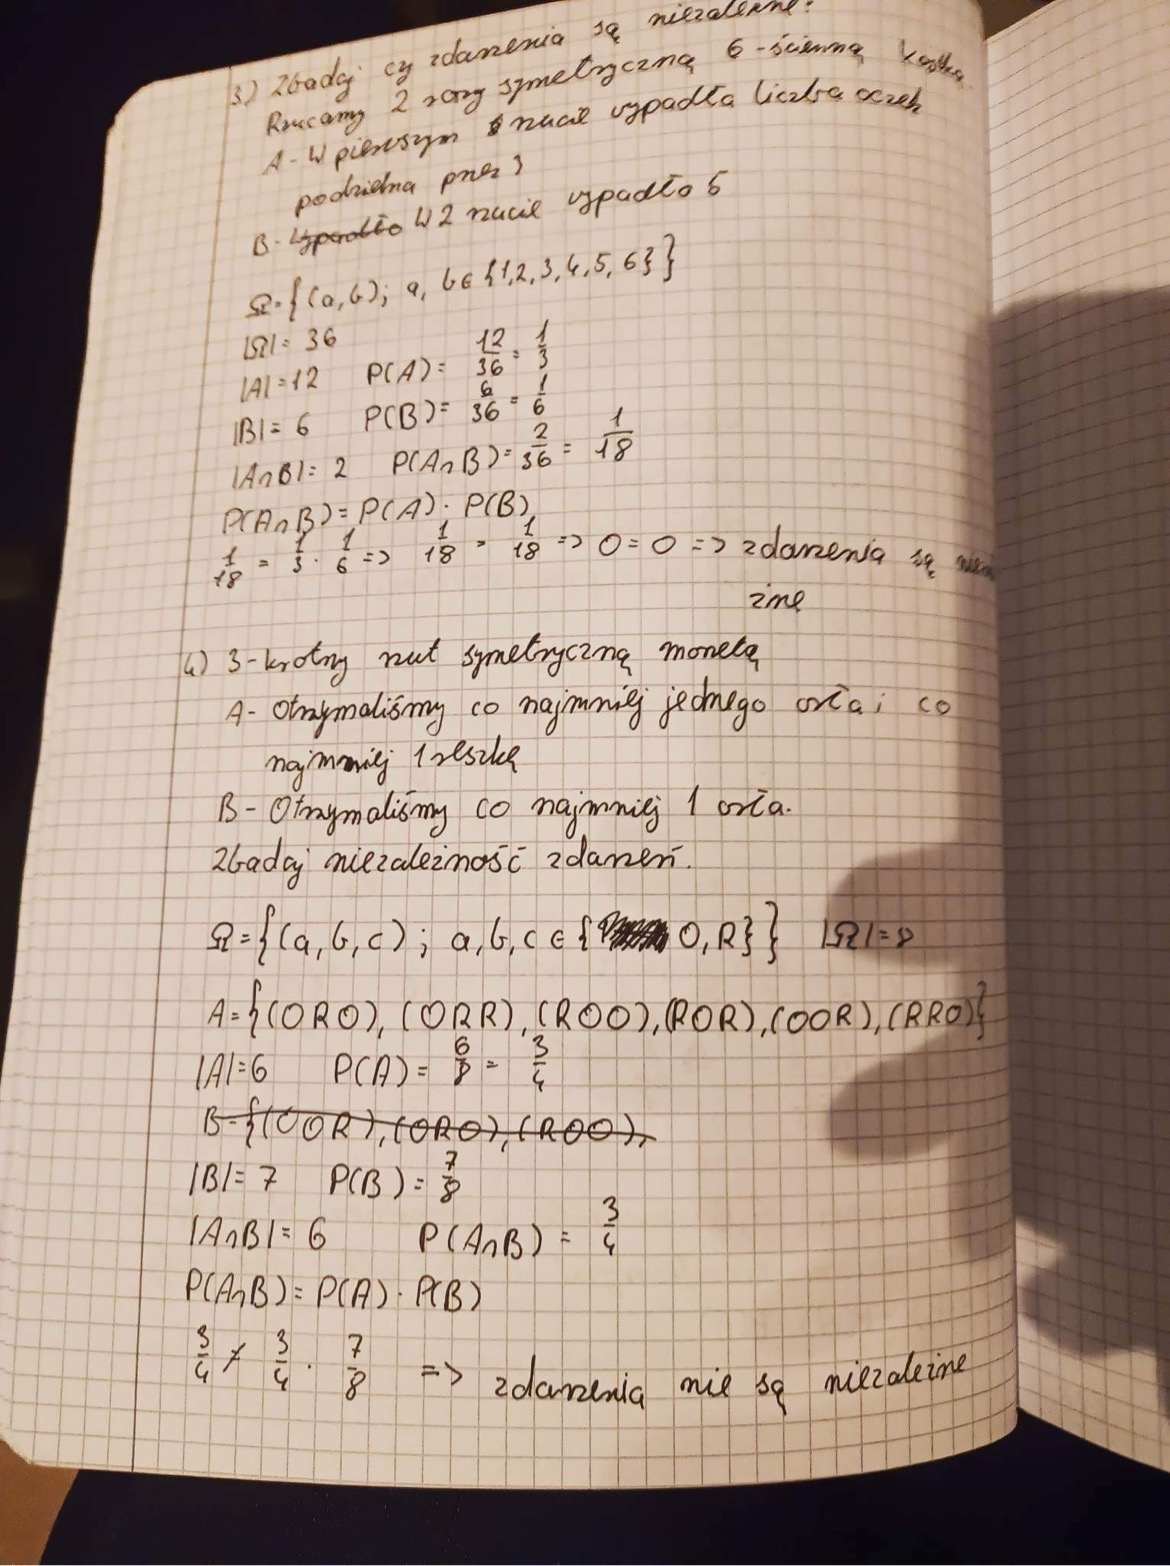 3) Zbadaj czy zdarzenia są niezależne:
Rzucamy 2 razy symetryczną 6-ścienną kostką.
A- W pierwszym rzucie wypadła liczba oczek
podzielna przez 3
B- Wypadło W 2 rzucie wypadło 5
Ω={(a,b); a, b∈{1,2,3,4,5,6}}
|Ω|= 36
|A|=12 P(A)= 12/36 = 1/3
|B|= 6 P(B)= 6/36 = 1/6
|A∩B|= 2 P(A∩B)= 2/36 = 1/18
P(A∩B)= P(A) · P(B)
1/18 = 1/3 · 1/6 => 1/18 = 1/18 => 0=0 => zdarzenia są
żne
4) 3-krotny rzut symetryczną monetą
A- Otrzymaliśmy co najmniej jednego orła i co
najmniej 1 reszkę
B- Otrzymaliśmy co najmniej 1 orła.
Zbadaj niezależność zdarzeń.
Ω={(a,b,c); a,b,c ∈{ O,R}} |Ω|=8
A={(ORO), (ORR), (ROO), (ROR), (OOR), (RRO)}
|A|=6 P(A)= 6/8 = 3/4
B={(OOR), (ORO), (ROO),
|B|= 7 P(B)= 7/8
|A∩B|= 6 P(A∩B) = 3/4
P(A∩B)= P(A) · P(B)
3/4 ≠ 3/4 · 7/8 => zdarzenia nie są niezależne